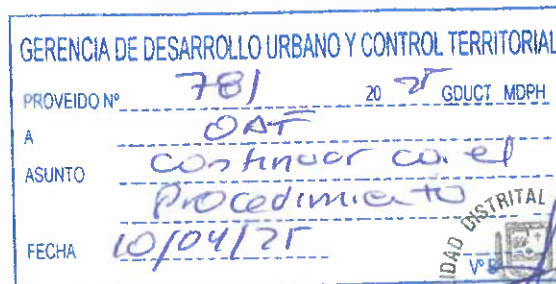 GERENCIA DE DESARROLLO URBANO Y CONTROL TERRITORIAL
PROVEIDO Nº 781 20 25 GDUCT MDPH
A OAF
ASUNTO Continuar con el
Procedimiento
FECHA 10/04/25
DAD DISTRITAL
VºB